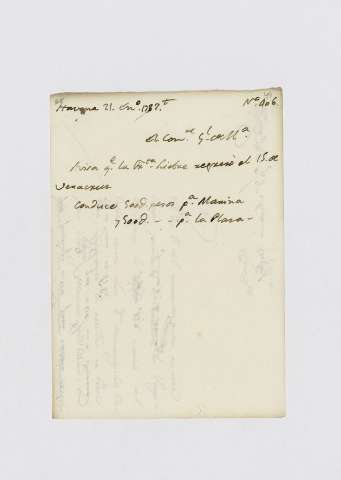 Havana 21. En.º 1787.
Nº 406.
El Com.te G.l de M.a
Avisa q.e la Frag.ta Liebre regresó el 15. de
Veracruz
Conduce 500d. pesos p.a Marina
y 500d. - - p.a la Plaza -